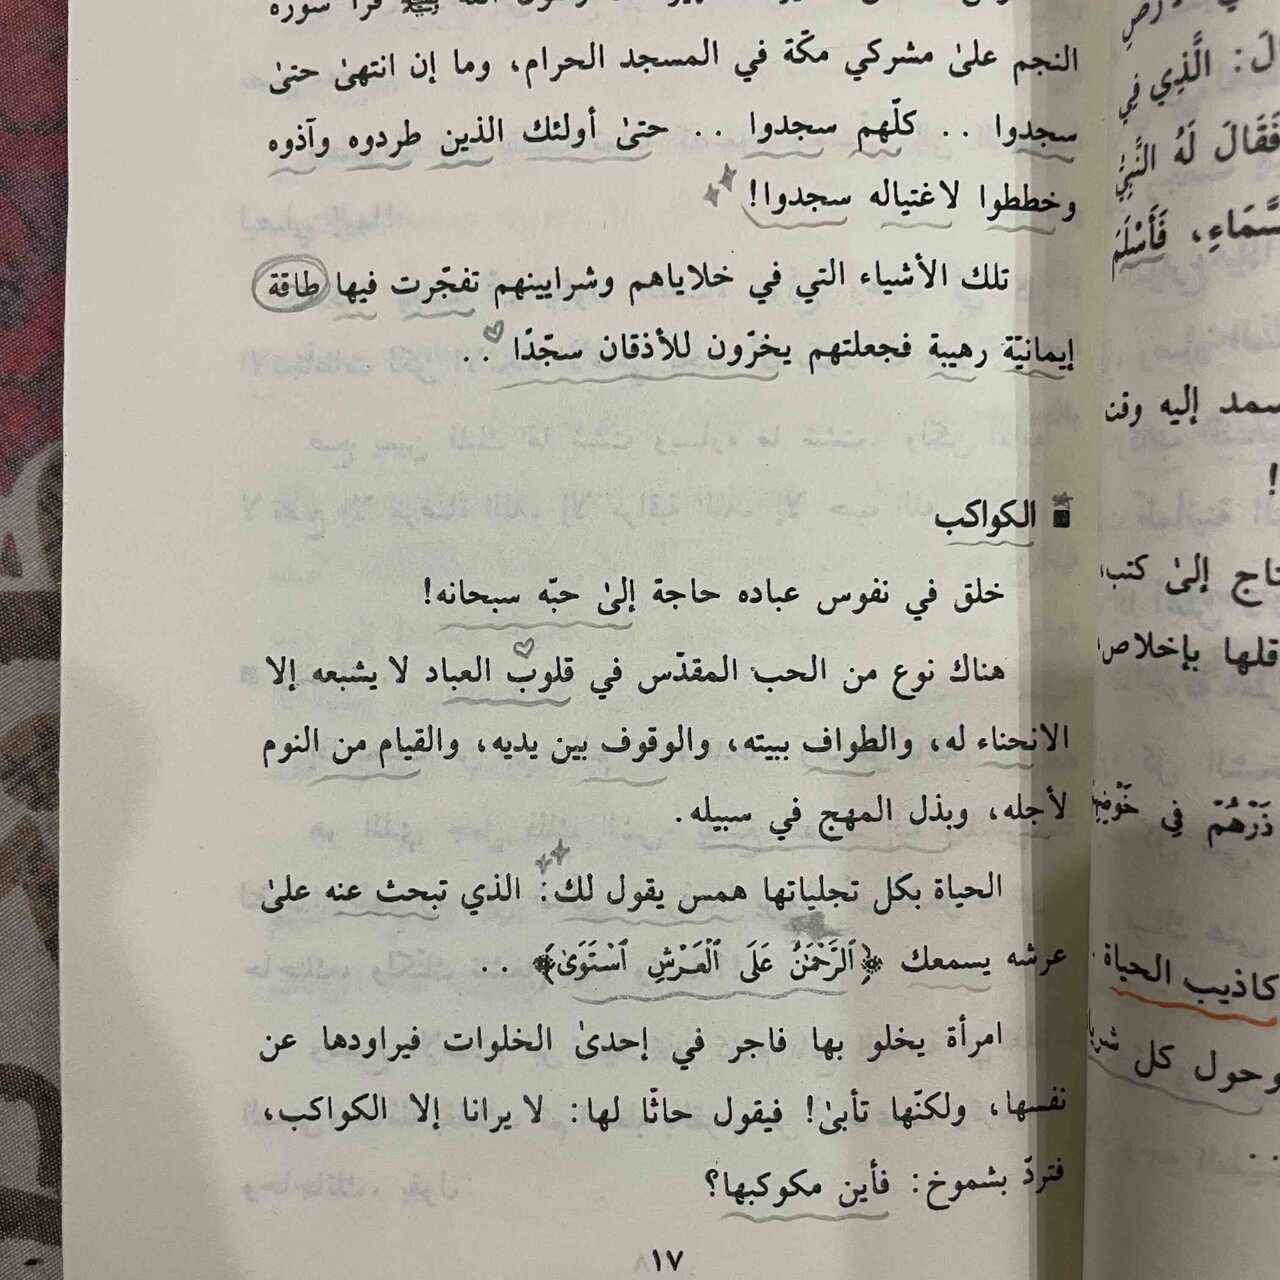 قرأ سورة
النجم علىٰ مشركي مكّة في المسجد الحرام، وما إن انتهىٰ حتىٰ
سجدوا .. كلّهم سجدوا .. حتىٰ أولئك الذين طردوه وآذوه
وخططوا لاغتياله سجدوا!
تلك الأشياء التي في خلاياهم وشرايينهم تفجّرت فيها طاقة
إيمانيّة رهيبة فجعلتهم يخرّون للأذقان سجّدًا ..
الكواكب
خلق في نفوس عباده حاجة إلىٰ حبّه سبحانه!
هناك نوع من الحب المقدّس في قلوب العباد لا يشبعه إلا
الانحناء له، والطواف ببيته، والوقوف بين يديه، والقيام من النوم
لأجله، وبذل المهج في سبيله.
الحياة بكل تجلياتها همس يقول لك: الذي تبحث عنه علىٰ
عرشه يسمعك ﴿ٱلرَّحْمَٰنُ عَلَى ٱلْعَرْشِ ٱسْتَوَىٰ﴾ ..
امرأة يخلو بها فاجر في إحدىٰ الخلوات فيراودها عن
نفسها، ولكنّها تأبىٰ! فيقول حاثّا لها: لا يرانا إلا الكواكب،
فتردّ بشموخ: فأين مكوكبها؟
١٧
الَّذِي فِي
فَقَالَ لَهُ النَّبِيُّ
فَأَسْلَمَ
إليه
!
إلىٰ كتب،
قلها بإخلاص
ذَرْهُمْ فِي
الحياة
وحول كل